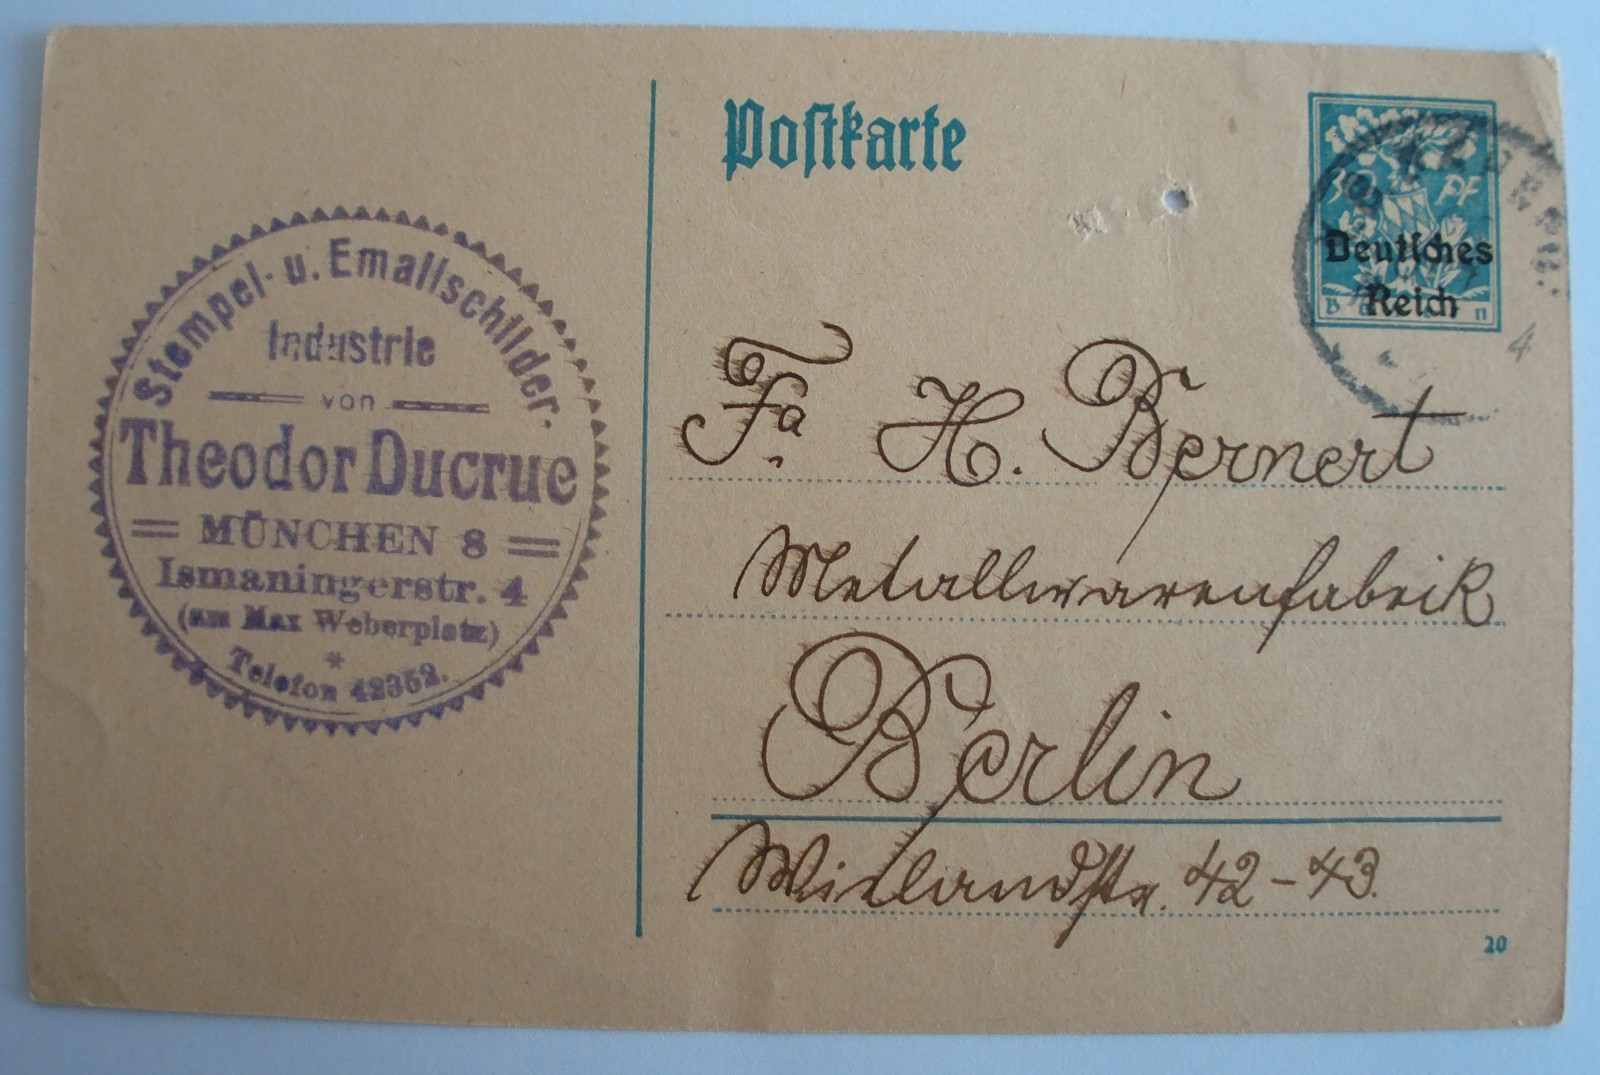 Stempel- u. Emailschilder-
Industrie
von
Theodor Ducrue
MÜNCHEN 8
Ismaningerstr. 4
(am Max Weberplatz)
*
Telefon 42352.
Postkarte
30 Pf
Deutsches
Reich
Fa. H. Bernert
Metallwarenfabrik
Berlin
Wielandstr. 42-43.
20